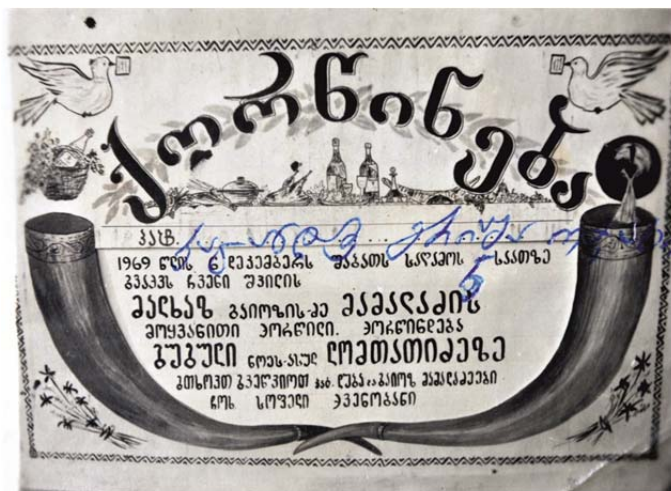 ქორწინება
პატ.
1969 წლის 6 დეკემბერს შაბათს საღამოს 5 საათზე
გვაქვს ჩვენი შვილის
მალხაზ გაიოზის-ძე მამალაძის
მოყვანითი ქორწილი. ქორწინდება
გუგული ნოეს-ასულ ლომთათიძეზე
გთხოვთ გვეწვიოთ პატ. ლუბა და გაიოზ მამალაძეები
ჩოხ სოფელი ქვენობანი